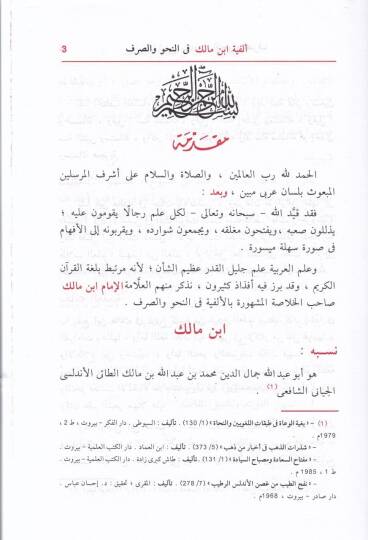 ألفية ابن مالك فى النحو والصرف 3
بسم الله الرحمن الرحيم
مقدمة
الحمد لله رب العالمين ، والصلاة والسلام على أشرف المرسلين
المبعوث بلسان عربى مبين ، وبعد :
فقد قيَّد الله – سبحانه وتعالى – لكل علم رجالًا يقومون عليه ؛
يذللون صعبه ،ويفتحون مغلقه ، ويجمعون شوارده ، ويقربونه إلى الأفهام
فى صورة سهلة ميسورة .
وعلم العربية علم جليل القدر عظيم الشأن ؛ لأنه مرتبط بلغة القرآن
الكريم ، وقد برز فيه أفذاذ كثيرون ، نذكر منهم العلَّامة الإمام ابن مالك
صاحب الخلاصة المشهورة بالألفية فى النحو والصرف .
ابن مالك
نسبه :
هو أبو عبد الله جمال الدين محمد بن عبد الله بن مالك الطائى الأندلسى
الجيانى الشافعى(1) .
(1) – « بغية الوعاة فى طبقات اللغويين والنحاة » (1/ 130) . تأليف : السيوطى . دار الفكر – بيروت ، ط 2 ،
1979م .
– « شذرات الذهب فى أخبار من ذهب » (5/ 373) . تأليف : ابن العماد . دار الكتب العلمية – بيروت .
– « مفتاح السعادة ومصباح السيادة » (1/ 131) . تأليف : طاش كبرى زادة . دار الكتب العلمية – بيروت ،
ط 1 ، 1985 م .
– « نفح الطيب من غصن الأندلس الرطيب » (7/ 278) . تأليف : المقرى ؛ تحقيق : د. إحسان عباس .
دار صادر – بيروت ، 1968م .